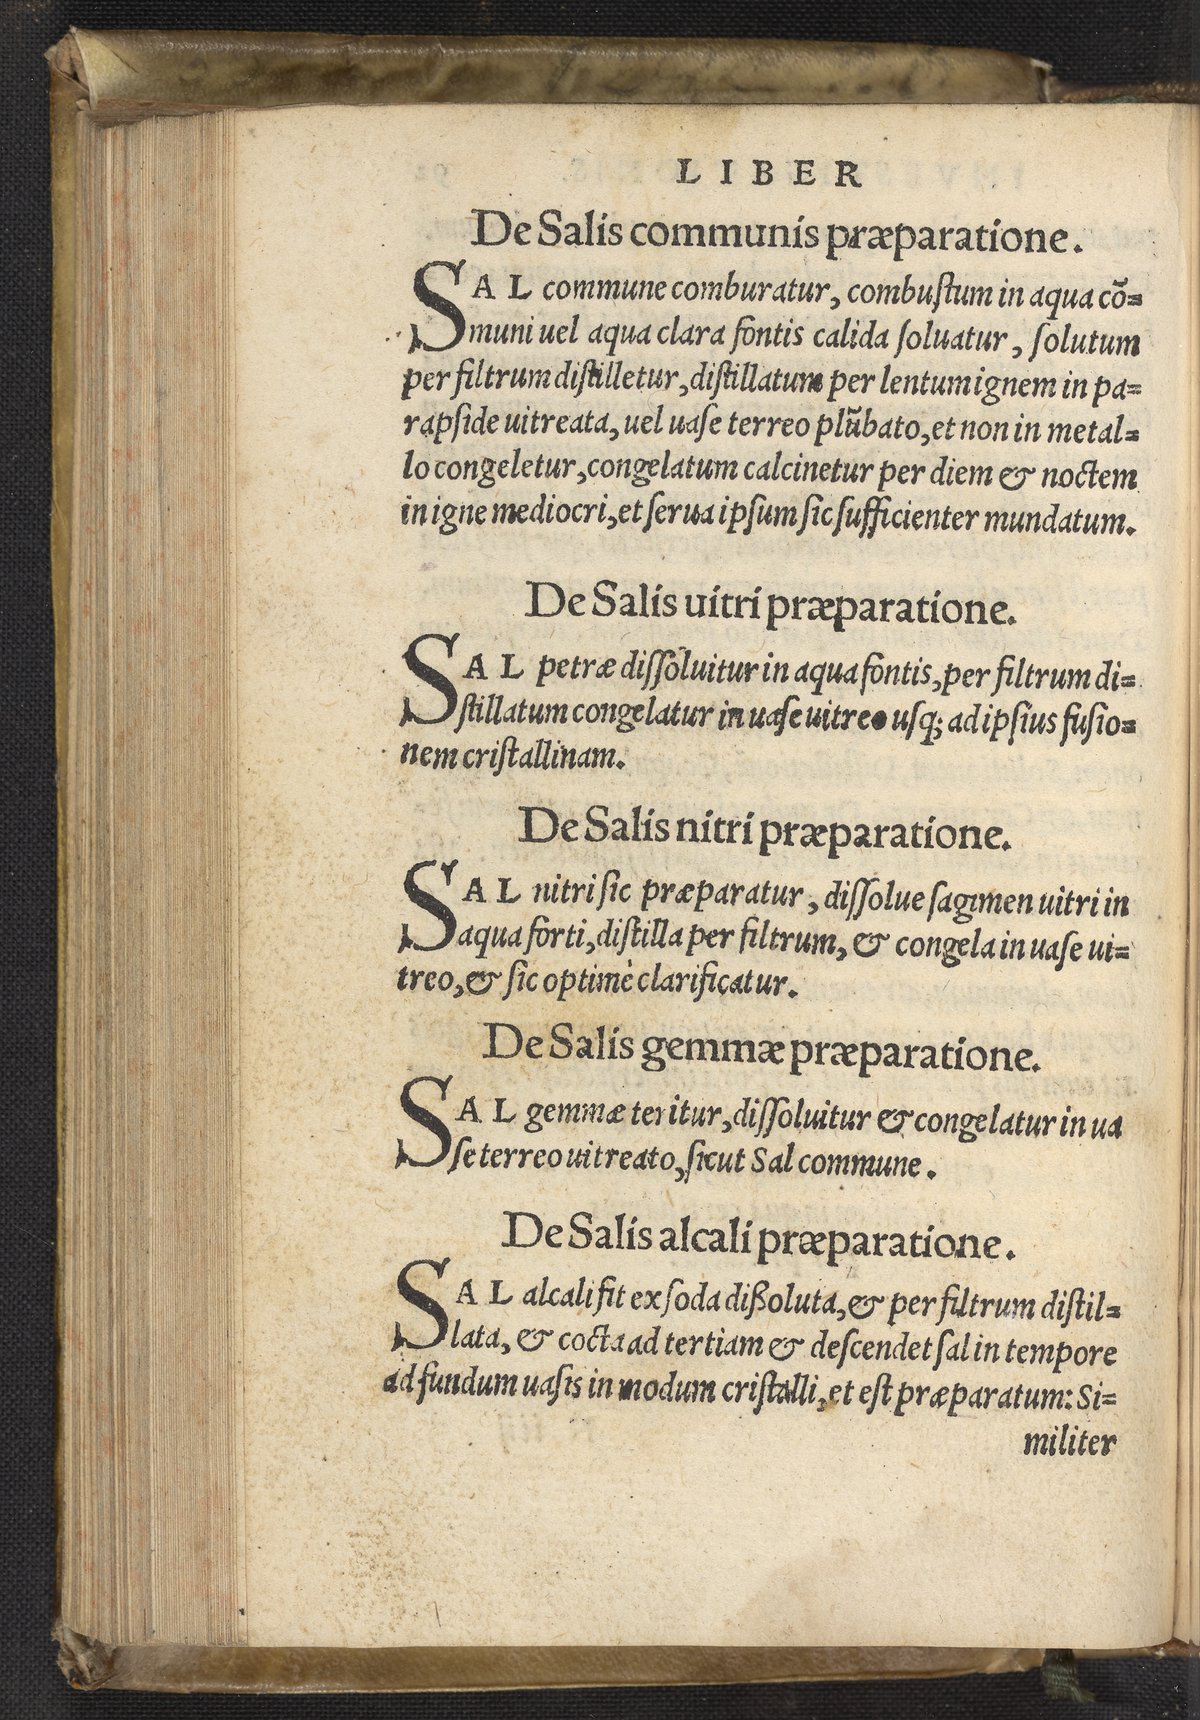 LIBER
De Salis communis præparatione.
SAL commune comburatur, combuſtum in aqua cõ=
muni uel aqua clara fontis calida ſoluatur, ſolutum
per filtrum diſtilletur, diſtillatum per lentum ignem in pa=
rapſide uitreata, uel uaſe terreo plũbato, et non in metal=
lo congeletur, congelatum calcinetur per diem & noctem
in igne mediocri, et ſerua ipſum ſic ſufficienter mundatum.
De Salis uitri præparatione.
SAL petræ diſſoluitur in aqua fontis, per filtrum di=
ſtillatum congelatur in uaſe uitreo uſq; ad ipſius fuſio=
nem criſtallinam.
De Salis nitri præparatione.
SAL nitri ſic præparatur, diſſolue ſagimen uitri in
aqua forti, diſtilla per filtrum, & congela in uaſe ui=
treo, & ſic optimè clarificatur.
De Salis gemmæ præparatione.
SAL gemmæ teritur, diſſoluitur & congelatur in ua
ſe terreo uitreato, ſicut Sal commune.
De Salis alcali præparatione.
SAL alcali fit ex ſoda dißoluta, & per filtrum diſtil=
lata, & cocta ad tertiam & deſcendet ſal in tempore
ad fundum uaſis in modum criſtalli, et eſt præparatum: Si=
militer